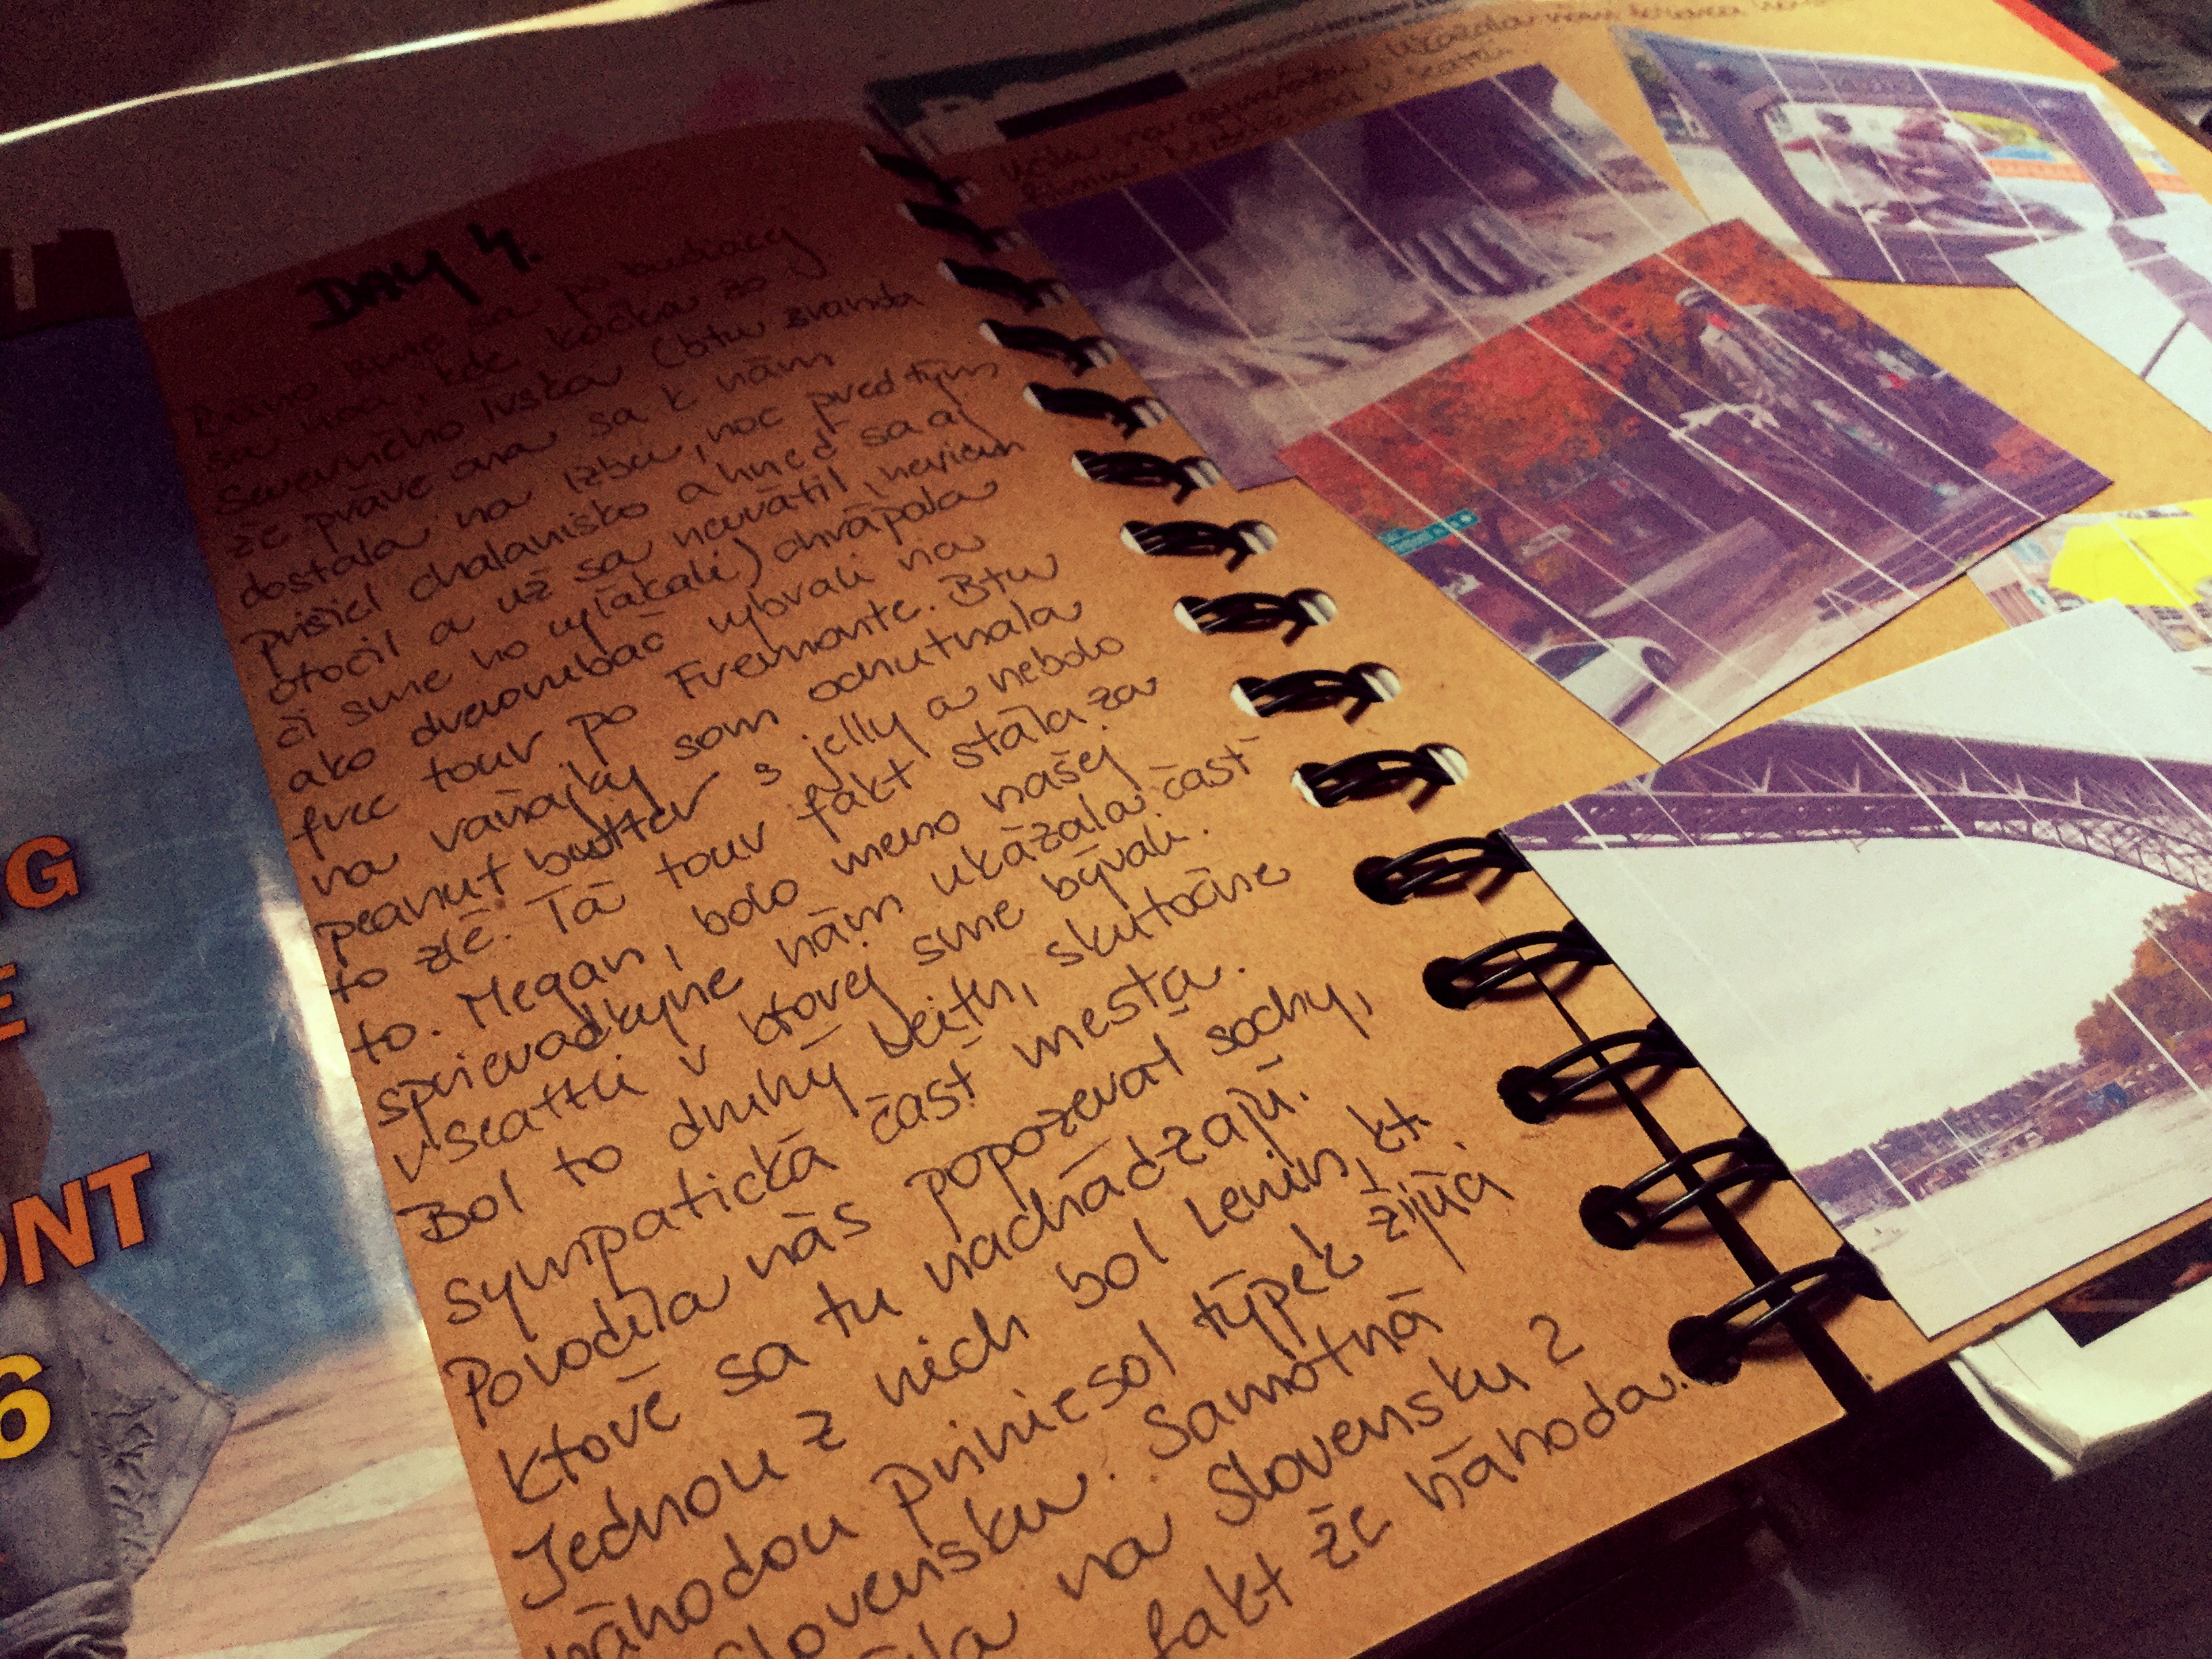 DAY 4.
Ráno sme sa po
sa noci, kde kočka zo
Severného Írska (btw sranda
že práve ona sa k nám
dostala na izbu, noc predtým
prišiel chalanisko a hneď sa aj
otočil a už sa nevrátil, neviem
či sme ho vylakali) chrápala
ako drevorubač vybrali na
free tour po Fremonte. Btw
na raňajky som ochutnala
peanut butter s jelly a nebolo
to zlé. Tá tour fakt stála za
to. Megan, bolo meno našej
sprievodkyne nám ukázala časť
v Seattli v ktorej sme bývali.
Bol to druhý deň, skutočne
sympatická časť mesta.
Povodila nás popozerať sochy,
ktoré sa tu nachádzajú.
Jednou z nich bol Lenin, kt.
náhodou priniesol týpek žijúci
Slovensku. Samotná
na Slovensku 2
fakt že náhoda.
v Seattli.
G
E
ONT
6